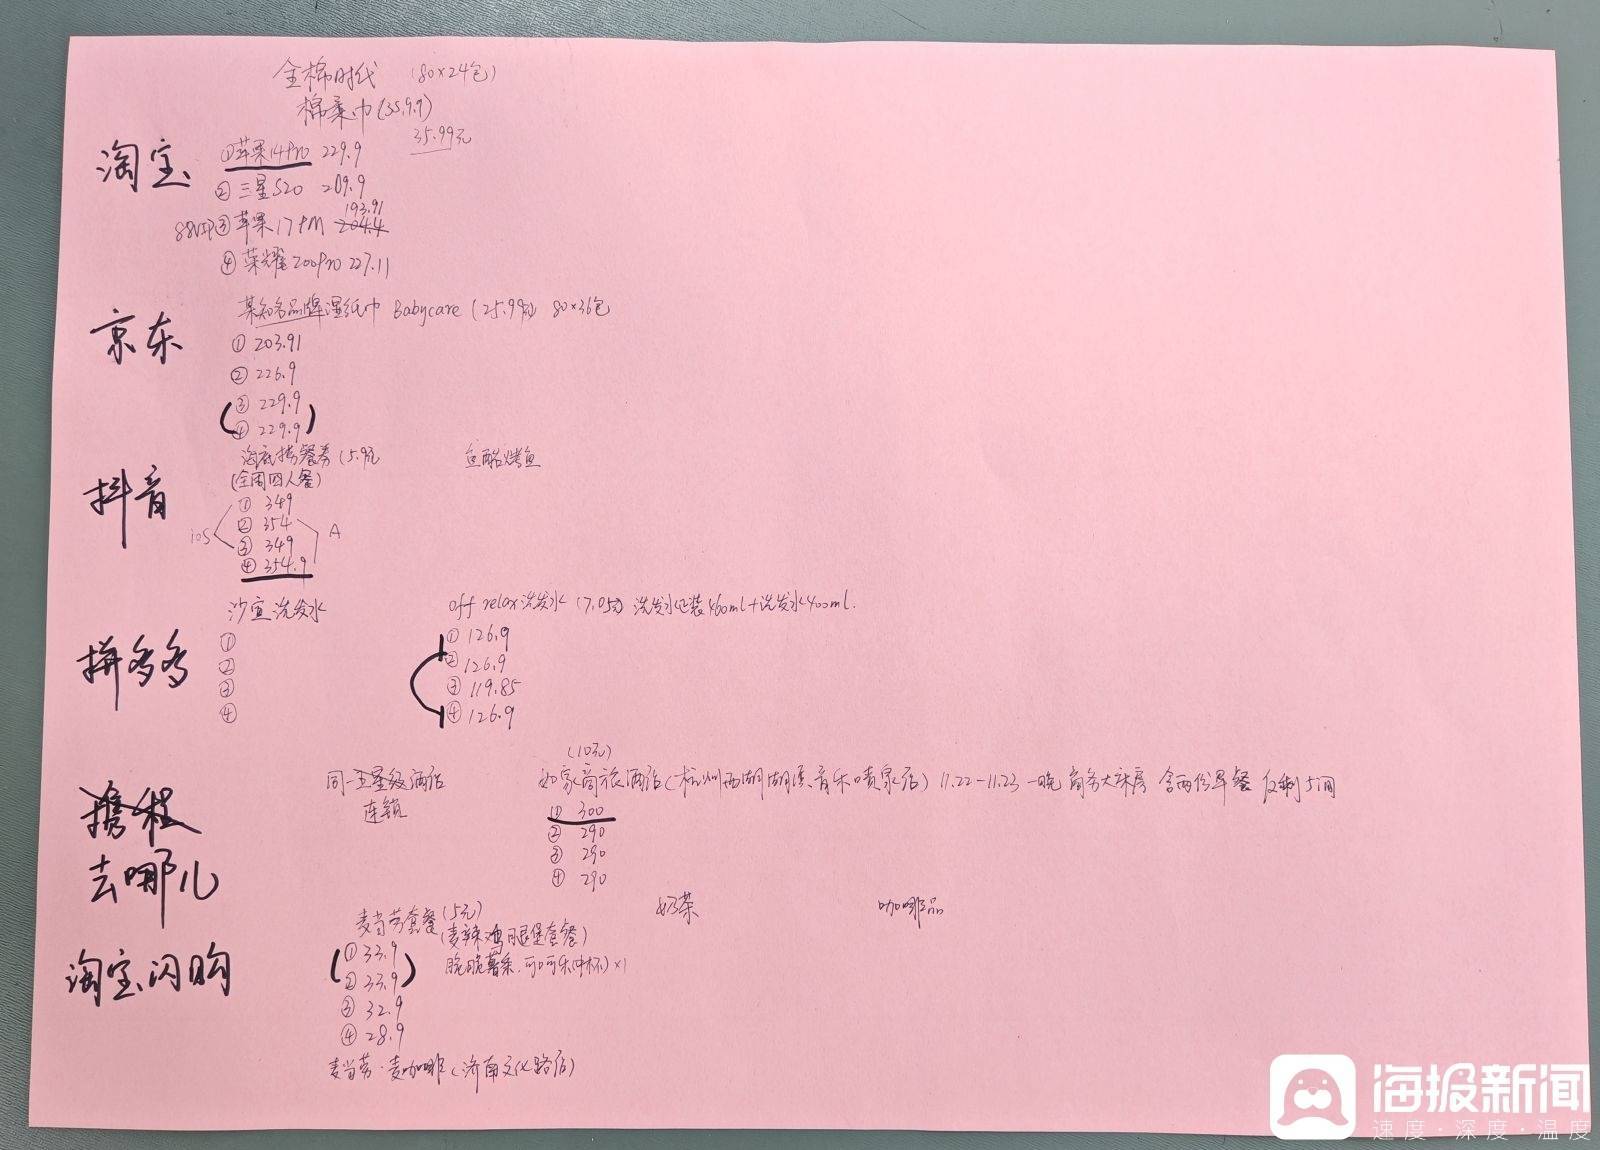 全棉时代 (80×24包)
棉柔巾(35.9.9)
35.99元
淘宝
①苹果14Pro 229.9
②三星S20 209.9
193.91
88VIP③苹果17PM 204.4
④荣耀200Pro 227.11
京东
某知名品牌湿纸巾 Babycare (25.99元) 80×36包
① 203.91
② 226.9
③ 229.9
④ 229.9
抖音
海底捞餐券 (5.9元 鱼酷烤鱼
(全国四人餐)
① 349
② 354
iOS A
③ 349
④ 354.9
拼多多
沙宣洗发水 off relax洗发水 (7.05元) 洗发水 装460ml+洗发水400ml.
① ① 126.9
② ② 126.9
③ ③ 119.85
④ ④ 126.9
(10元)
携程
同一五星级酒店 如家商旅酒店(杭州西湖湖滨音乐喷泉店) 11.22-11.23 一晚 商务大床房 含两份早餐 仅剩5间
连锁
① 300
② 290
③ 290
④ 290
去哪儿
奶茶 咖啡品
淘宝闪购
麦当劳套餐(5元)
(麦辣鸡腿堡套餐)
脆脆薯条.可口可乐(中杯)×1
① 33.9
② 33.9
③ 32.9
④ 28.9
麦当劳·麦咖啡(济南文化路店)
海报新闻
速度·深度·温度